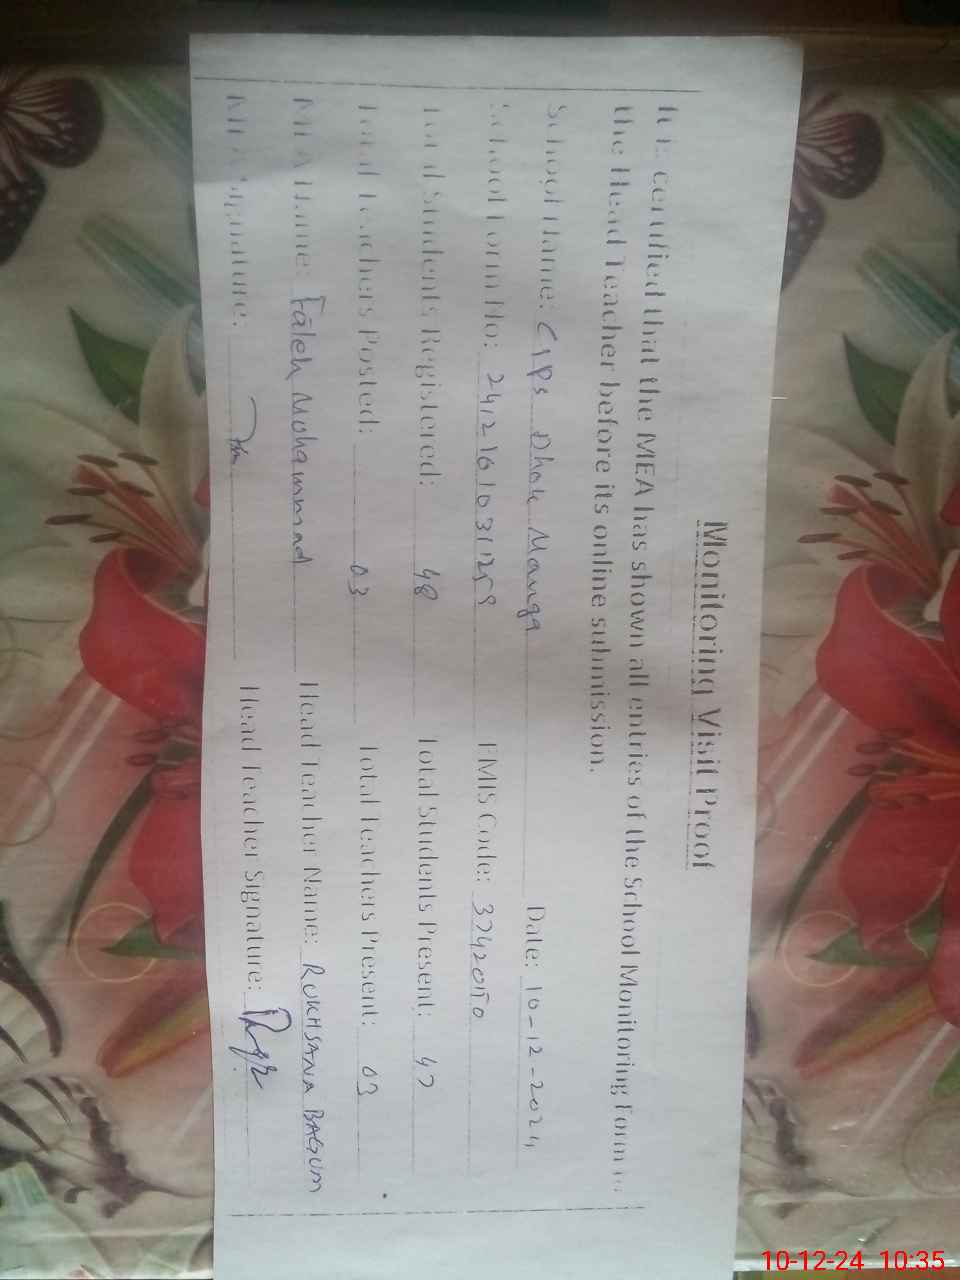 Monitoring Visit Proof
It is certified that the MEA has shown all entries of the School Monitoring Form to
the Head Teacher before its online submission.
School Name: GPS Dhok Manga Date: 10-12-2024
School Form No: EMIS Code:
Total Students Registered: 48 Total Students Present: 47
Total Teachers Posted: 03 Total Teachers Present: 03
MEA Name: Fateh Mohammad Head Teacher Name: ROKHSANA BAGUM
MEA Signature: Head Teacher Signature:
10-12-24 10:35